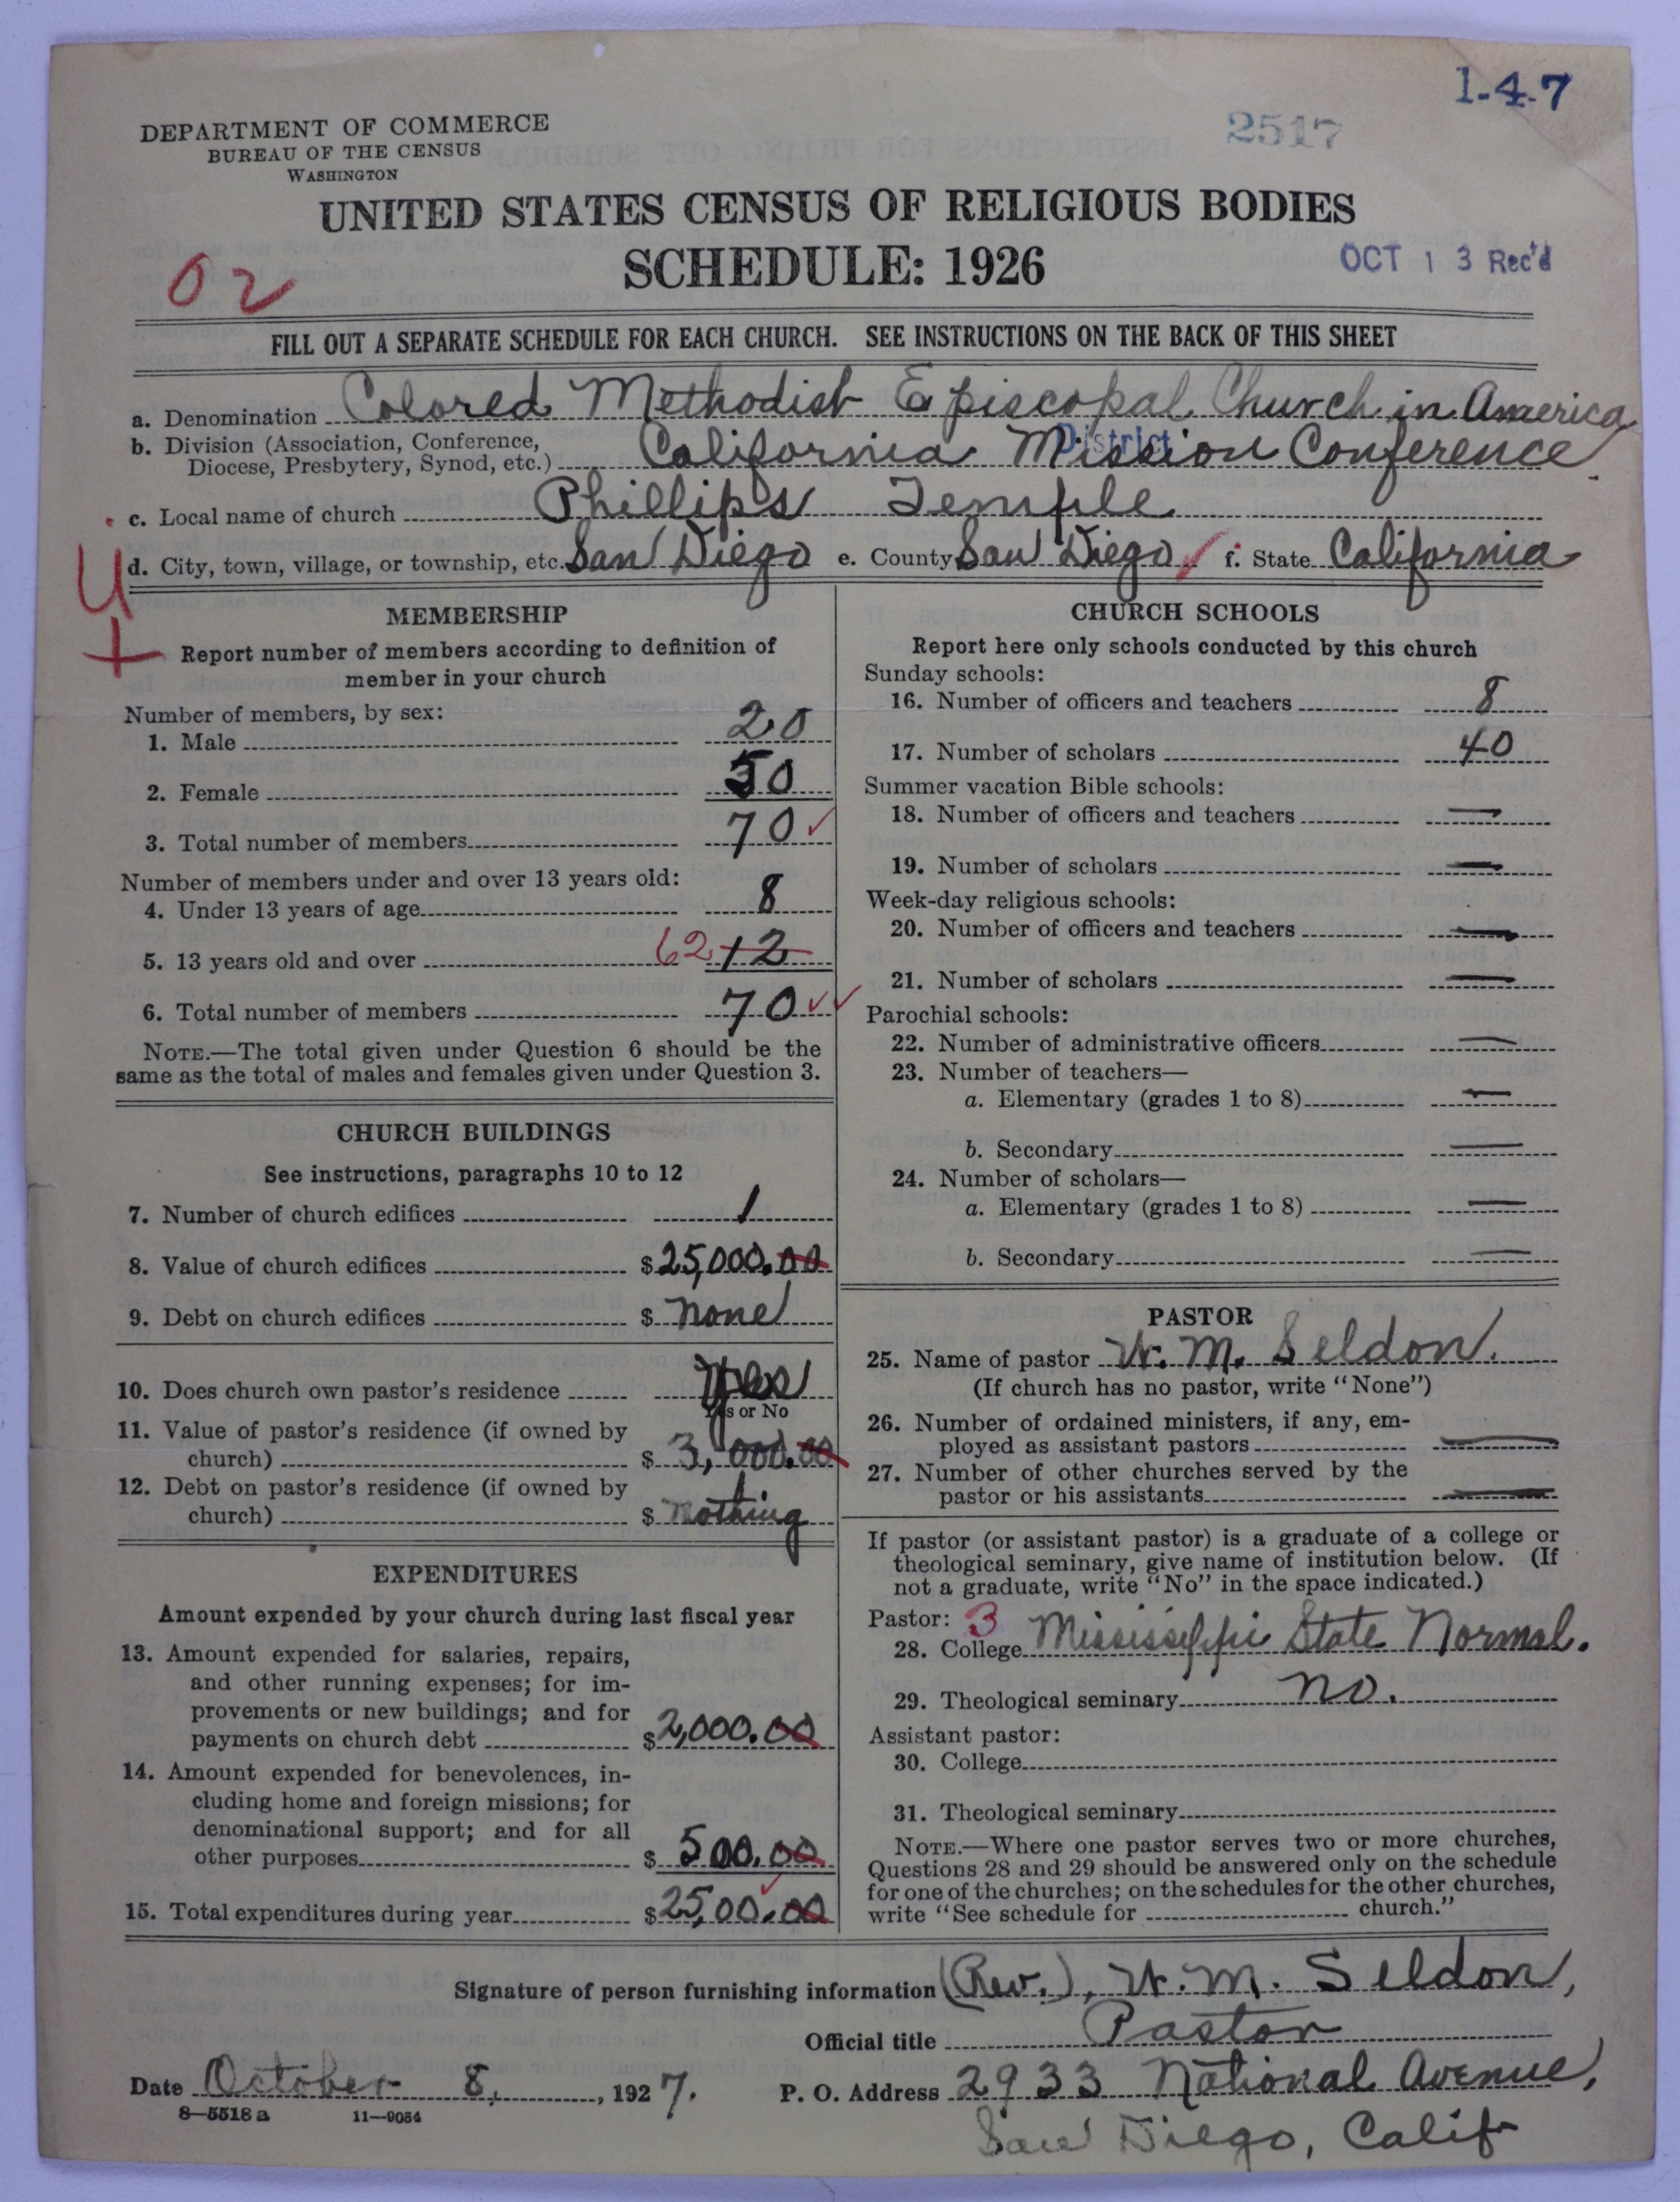 1-4-7
2517
DEPARTMENT OF COMMERCE
BUREAU OF THE CENSUS
WASHINGTON
UNITED STATES CENSUS OF RELIGIOUS BODIES
SCHEDULE: 1926
OCT 13 Rec'd
02
FILL OUT A SEPARATE SCHEDULE FOR EACH CHURCH. SEE INSTRUCTIONS ON THE BACK OF THIS SHEET
a. Denomination Colored Methodist Episcopal Church in America
b. Division (Association, Conference,
Diocese, Presbytery, Synod, etc.) California Mission Conference
District
c. Local name of church Phillips Temple
U
d. City, town, village, or township, etc. San Diego e. County San Diego ✓ f. State California
+
MEMBERSHIP
Report number of members according to definition of
member in your church
Number of members, by sex:
1. Male 20
2. Female 50
3. Total number of members 70 ✓
Number of members under and over 13 years old:
4. Under 13 years of age 8
5. 13 years old and over 62 12
6. Total number of members 70 ✓✓
NOTE.—The total given under Question 6 should be the
same as the total of males and females given under Question 3.
CHURCH BUILDINGS
See instructions, paragraphs 10 to 12
7. Number of church edifices 1
8. Value of church edifices $ 25,000.00
9. Debt on church edifices $ none
10. Does church own pastor's residence Yes
Yes or No
11. Value of pastor's residence (if owned by
church) $ 3,000.00
12. Debt on pastor's residence (if owned by
church) $ nothing
EXPENDITURES
Amount expended by your church during last fiscal year
13. Amount expended for salaries, repairs,
and other running expenses; for im-
provements or new buildings; and for
payments on church debt $ 2,000.00
14. Amount expended for benevolences, in-
cluding home and foreign missions; for
denominational support; and for all
other purposes $ 500.00
15. Total expenditures during year $ 25,00.00
CHURCH SCHOOLS
Report here only schools conducted by this church
Sunday schools:
16. Number of officers and teachers 8
17. Number of scholars 40
Summer vacation Bible schools:
18. Number of officers and teachers —
19. Number of scholars —
Week-day religious schools:
20. Number of officers and teachers —
21. Number of scholars —
Parochial schools:
22. Number of administrative officers —
23. Number of teachers—
a. Elementary (grades 1 to 8) —
b. Secondary —
24. Number of scholars—
a. Elementary (grades 1 to 8) —
b. Secondary —
PASTOR
25. Name of pastor W. M. Seldon.
(If church has no pastor, write "None")
26. Number of ordained ministers, if any, em-
ployed as assistant pastors —
27. Number of other churches served by the
pastor or his assistants —
If pastor (or assistant pastor) is a graduate of a college or
theological seminary, give name of institution below. (If
not a graduate, write "No" in the space indicated.)
Pastor: 3
28. College Mississippi State Normal.
29. Theological seminary no.
Assistant pastor:
30. College
31. Theological seminary
NOTE.—Where one pastor serves two or more churches,
Questions 28 and 29 should be answered only on the schedule
for one of the churches; on the schedules for the other churches,
write "See schedule for church."
Signature of person furnishing information (Rev.), W. M. Seldon,
Official title Pastor
Date October 8, 1927. P. O. Address 2933 National Avenue,
San Diego, Calif
8—5518 a 11—9054